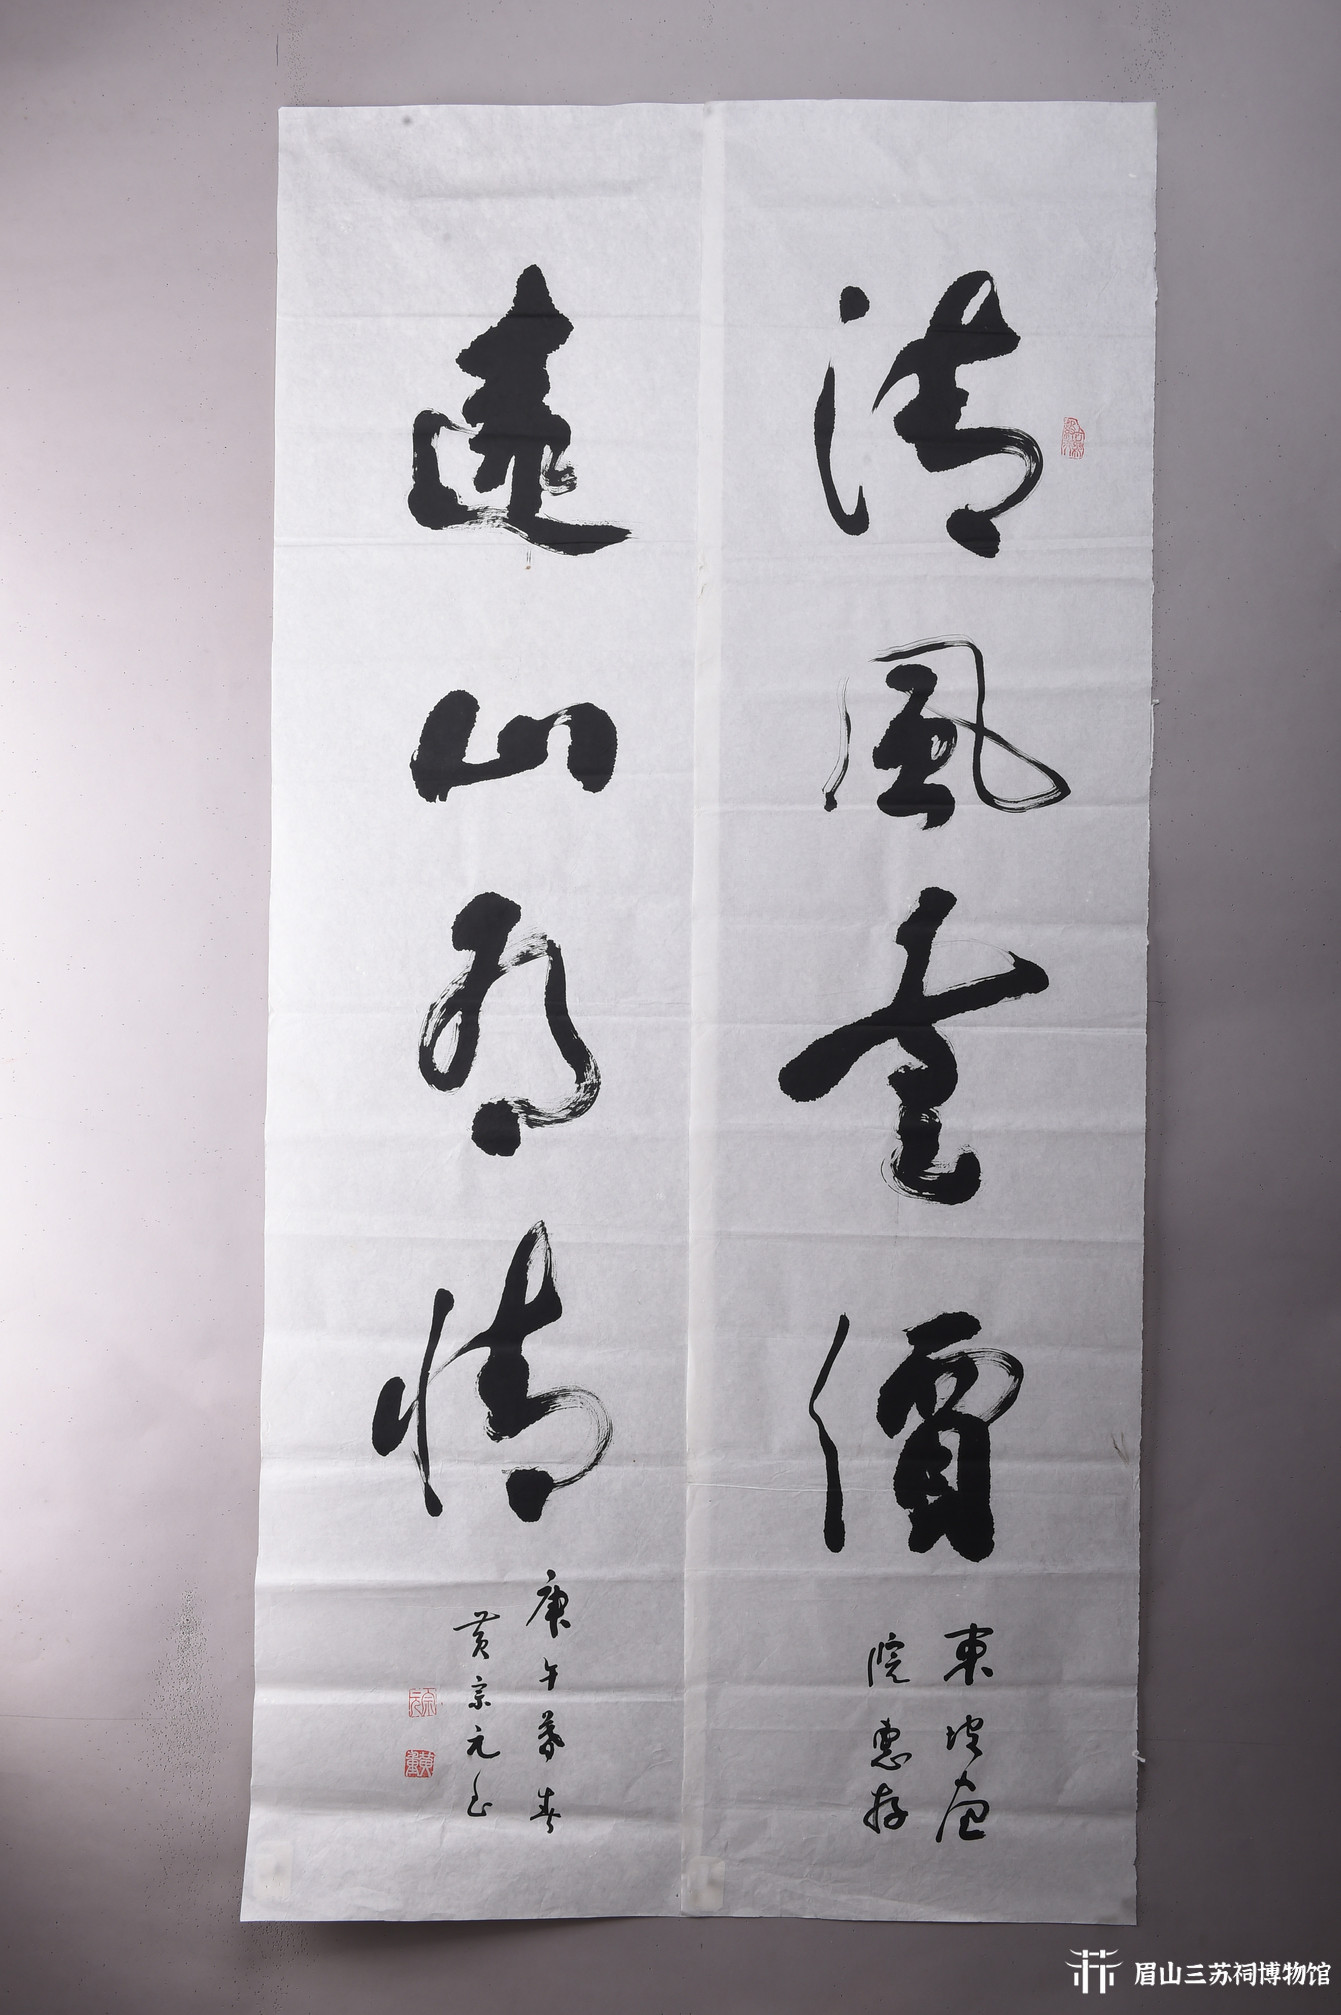 清風無價
東坡畫
院惠存
遠山有情
庚午暮春
黄宗元书
宗元
眉山三苏祠博物馆